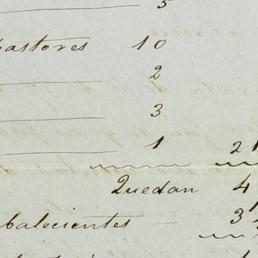 5
pastores 10
2
3
1 21
Quedan 4
balecientes 3